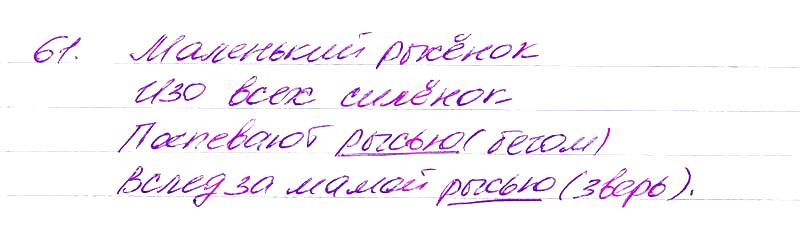 61. Маленький рыжёнок
Изо всех силёнок
Поспевают рысью (бегом)
Вслед за мамой рысью (зверь).